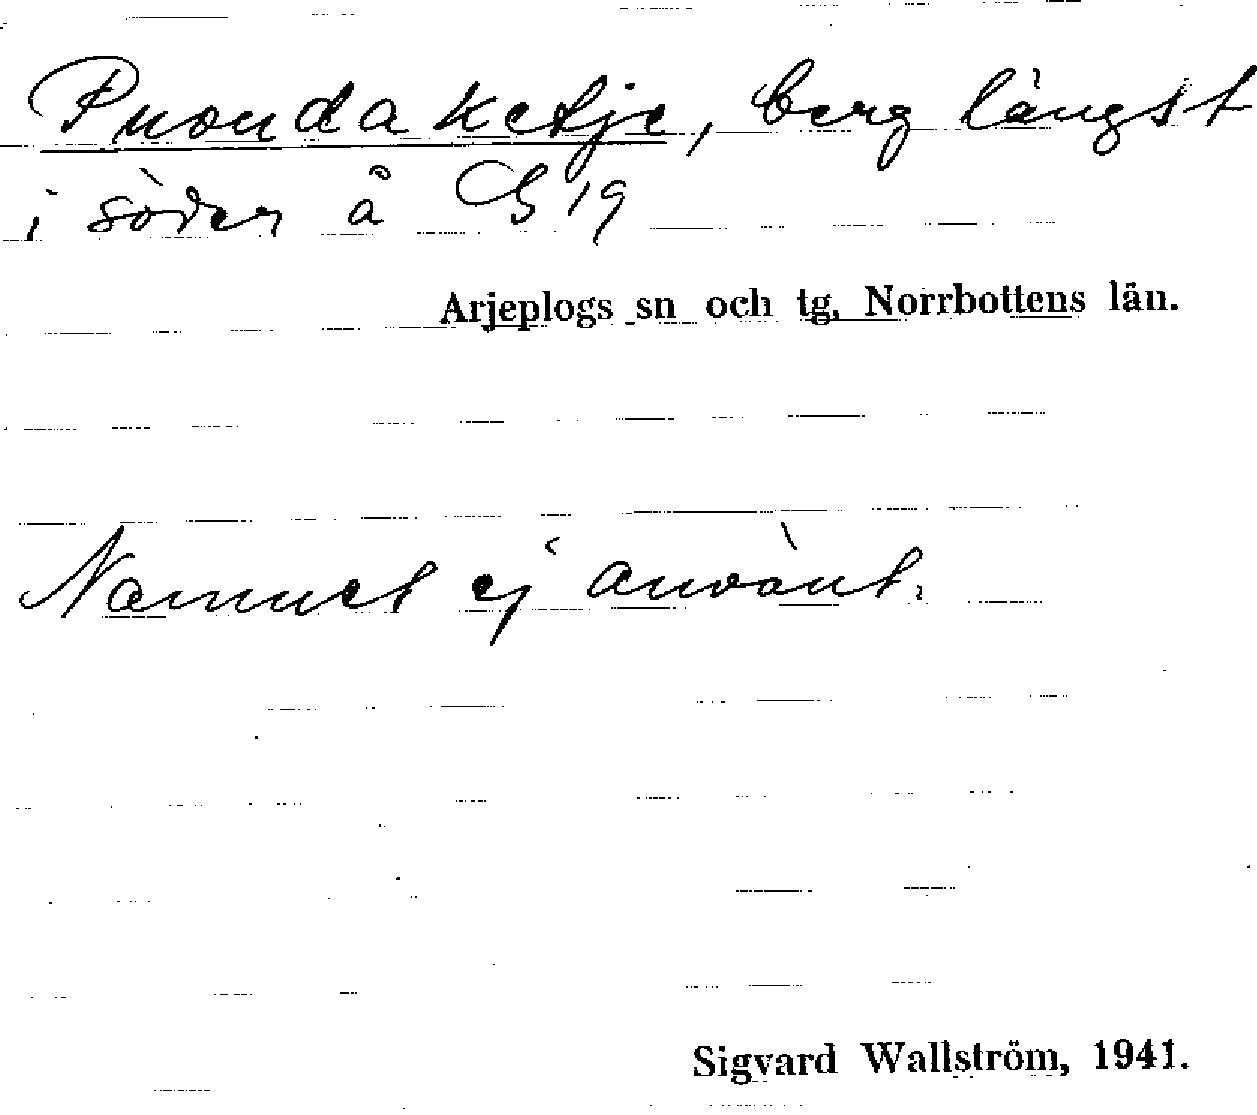 Puondaketje, berg längst
i söder å G 19
Arjeplogs sn och tg, Norrbottens län.
Namnet ej använt.
Sigvard Wallström, 1941.